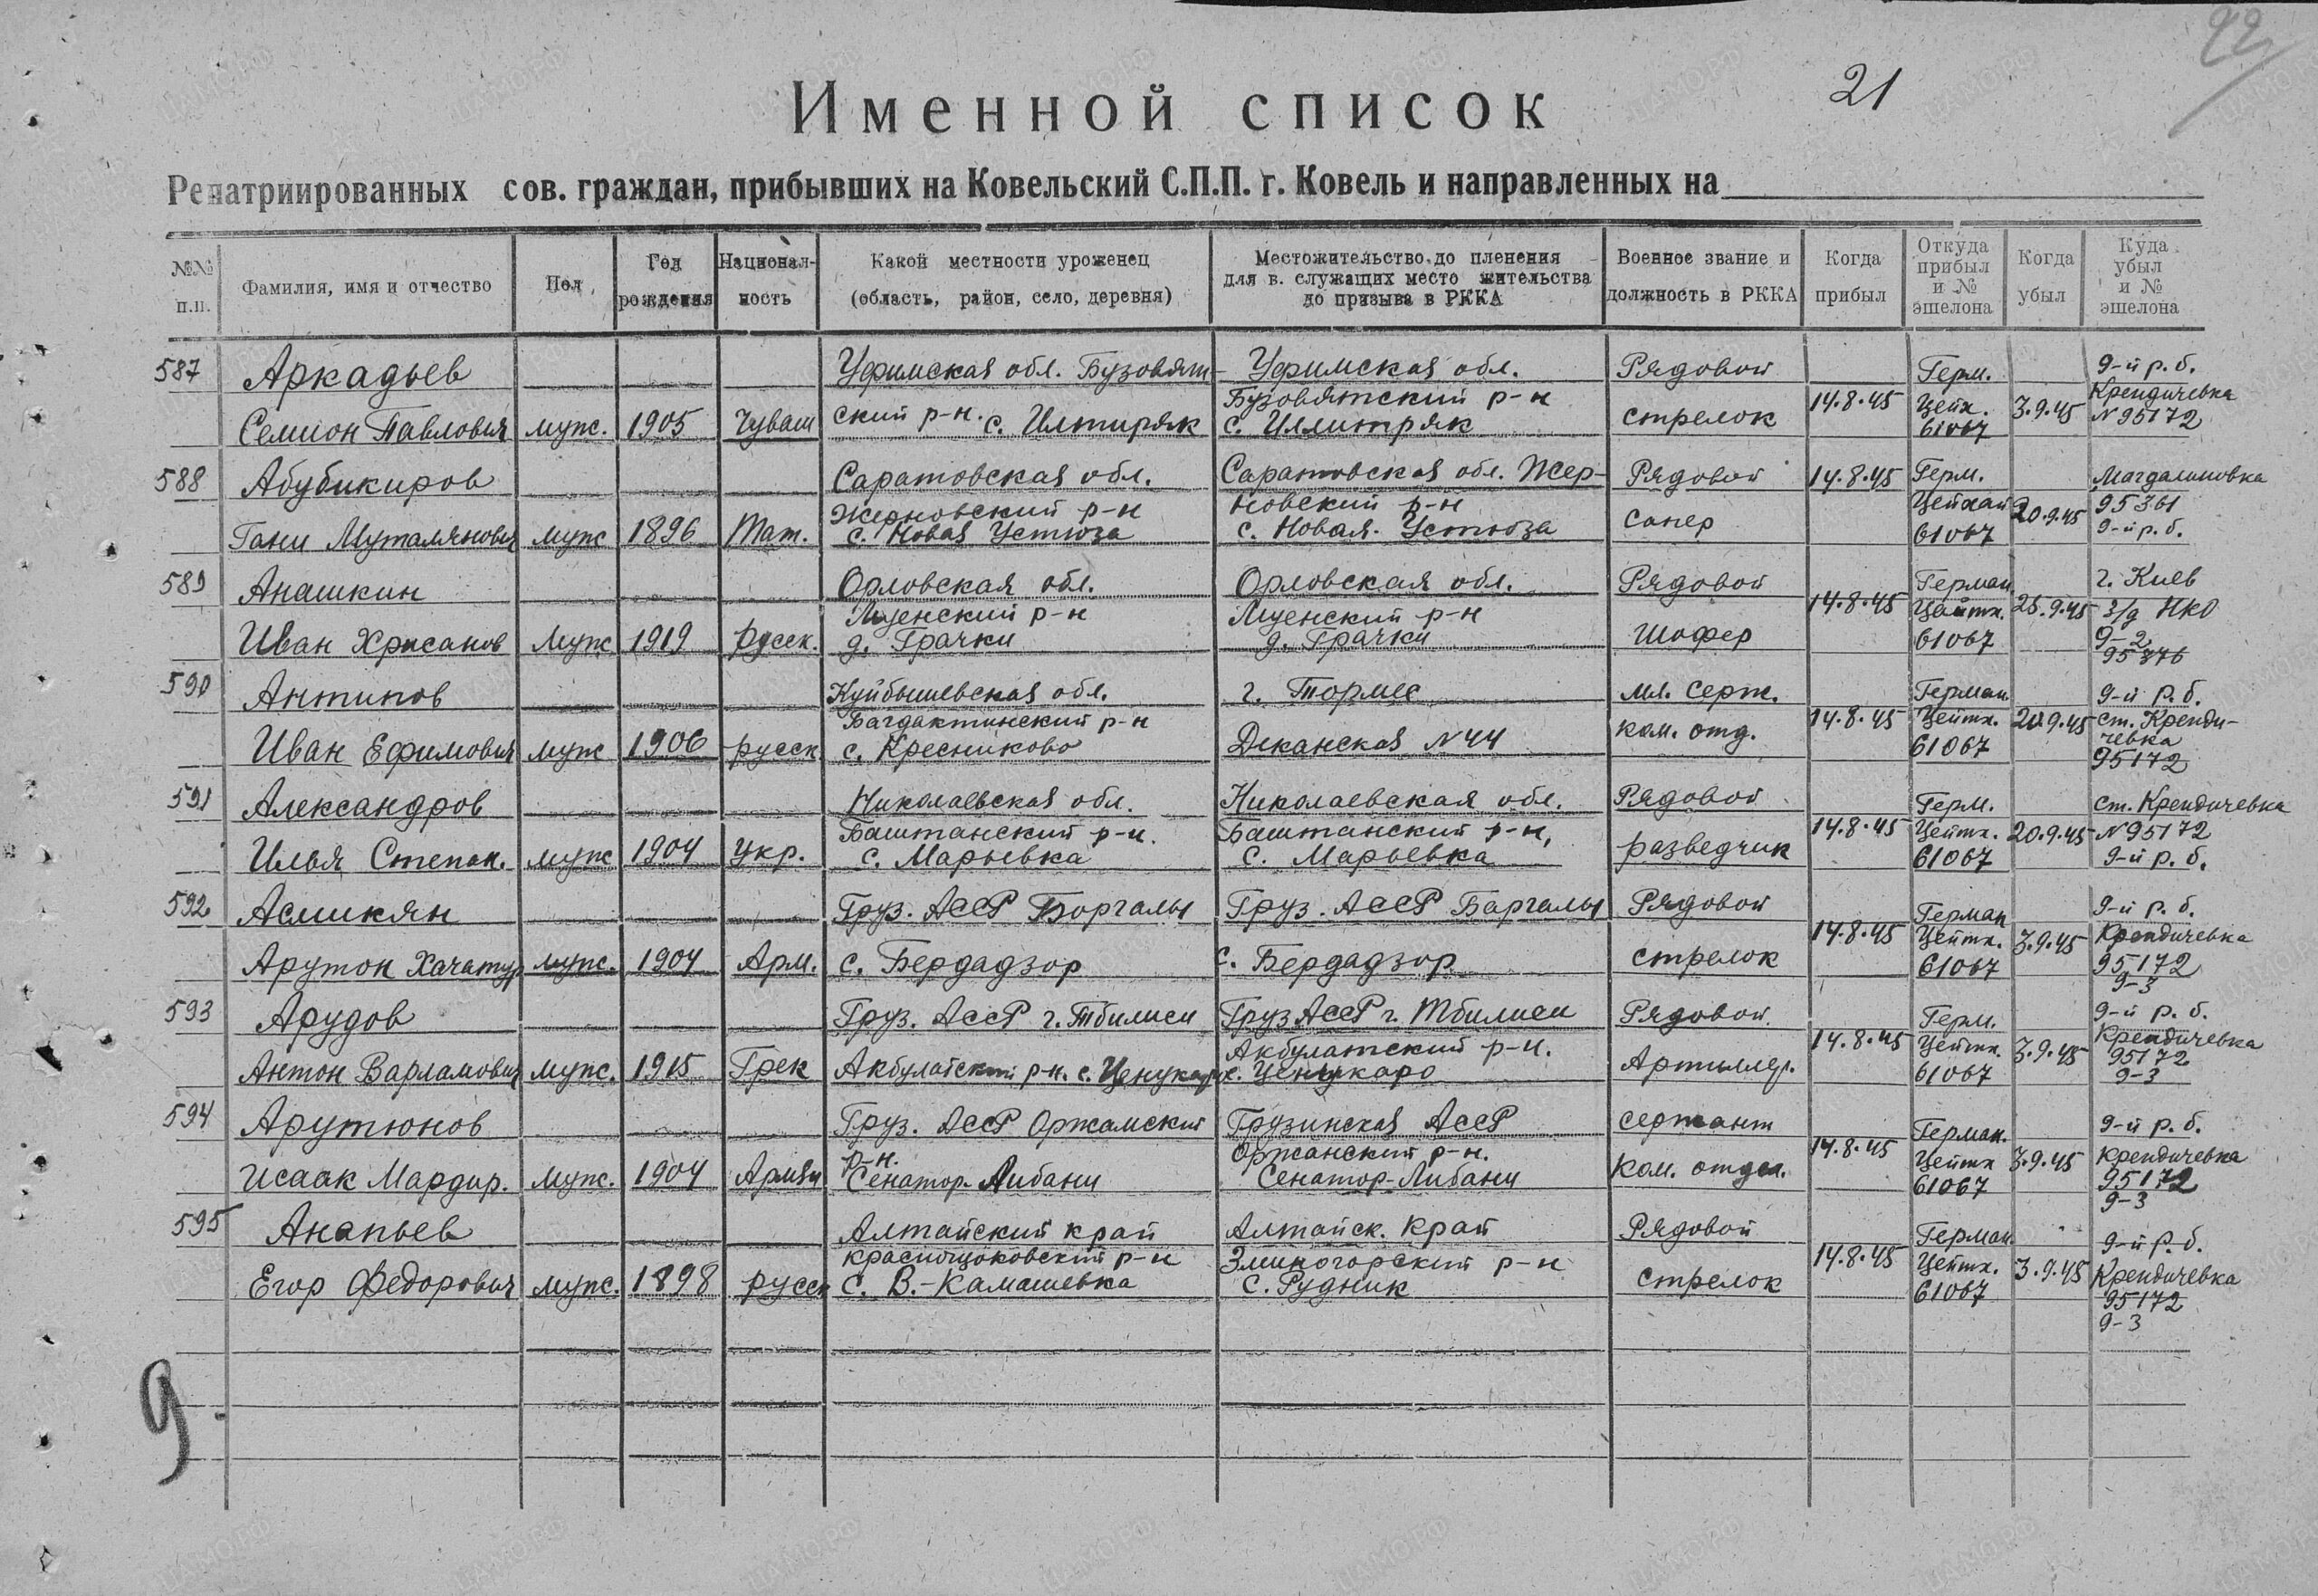 22
21
Именной список
Репатриированных сов. граждан, прибывших на Ковельский С.П.П. г. Ковель и направленных на
№№ п.п.
Фамилия, имя и отчество
Пол
Год рождения
Националь-ность
Какой местности уроженец (область, район, село, деревня)
Местожительство до пленения для в. служащих место жительства до призыва в РККА
Военное звание и должность в РККА
Когда прибыл
Откуда прибыл и № эшелона
Когда убыл
Куда убыл и № эшелона
587 Аркадьев Уфимская обл. Бузовят- Уфимская обл. Рядовой Герм. 9-й р.б.
Семион Павлович муж. 1905 Чуваш ский р-н. с. Илтиряк Бузовятский р-н с. Илмитряк стрелок 14.8.45 Цейх. 61067 3.9.45 Крендичевка N 95172
588 Абубикиров Саратовская обл. Саратовская обл. Жер- Рядовой 14.8.45 Герм. Магдалиновка
Гани Муталянович муж 1896 Тат. Жерновский р-н с. Новая Устюза новский р-н с. Новая. Устюза сапер Цейхай 61067 20.9.45 95361 9-й р.б.
589 Анашкин Орловская обл. Орловская обл. Рядовой Герман. г. Киев
Иван Хрисанов Муж 1919 русск. Мценский р-н д. Грачки Мценский р-н д. Грачки шофер 14.8.45 Цейтх. 61067 25.9.45 з/д НКО 9-2 95876
590 Антипов Куйбышевская обл. г. Тормес мл. серж. Герман. 9-й р.б.
Иван Ефимович муж 1906 русск Багдактинский р-н с. Кресниково Деканская N 44 ком. отд. 14.8.45 Цейтх. 61067 20.9.45 ст. Кренди-чевка 95172
591 Александров Николаевская обл. Николаевская обл. Рядовой Герм. ст. Крендичевка
Илья Степан. муж 1904 Укр. Баштанский р-н. с. Марьевка Баштанский р-н, с. Марьевка разведчик 14.8.45 Цейтх. 61067 20.9.45 N 95172 9-й р.б.
592 Асмикян Груз. АССР Боргалы Груз. АССР Баргалы Рядовой Герман 9-й р.б.
Арутон Хачатур муж. 1904 Арм. с. Бердадзор с. Бердадзор стрелок 14.8.45 Цейтх. 61067 3.9.45 Крендичевка 95172 9-3
593 Арудов Груз. АССР г. Тбилиси Груз АССР г. Тбилиси Рядовой. Герм. 9-й р.б.
Антон Варламович муж. 1915 Грек Акбулатский р-н. с. Ценукаро Акбулатский р-н. с. Ценукаро Артиллер. 14.8.45 Цейтх. 61067 3.9.45 Крендичевка 95172 9-3
594 Арутюнов Груз. АССР Оржамский Грузинская АССР сержант Герман. 9-й р.б.
Исаак Мардир. муж. 1904 Армян р-н. Сенатор-Либани Оржанский р-н. Сенатор-Либани Ком. отдел. 14.8.45 Цейтх 61067 3.9.45 Крендичевка 95172 9-3
595 Анапьев Алтайский край Алтайск. край Рядовой Герман. 9-й р.б.
Егор Федорович муж. 1898 русск Краснощоковский р-н с. В.-Камашевка Змеиногорский р-н с. Рудник стрелок 14.8.45 Цейтх. 61067 3.9.45 Крендичевка 95172 9-3
9